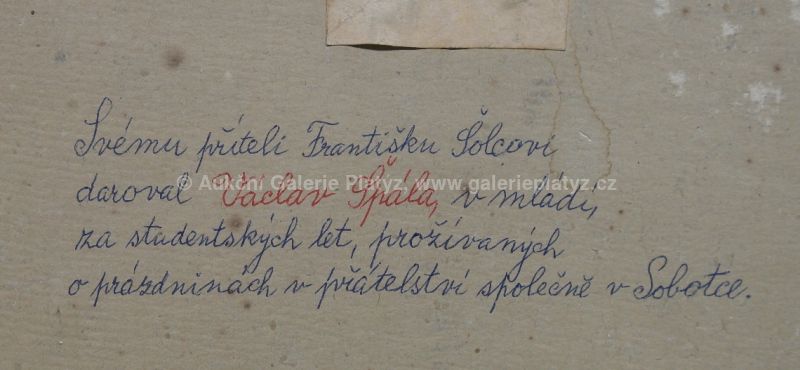 Svému příteli Františku Šolcovi
daroval Václav Špála, v mládí,
© Aukční Galerie Platýz, www.galerieplatyz.cz
za studentských let, prožívaných
o prázdninách v přátelství společně v Sobotce.